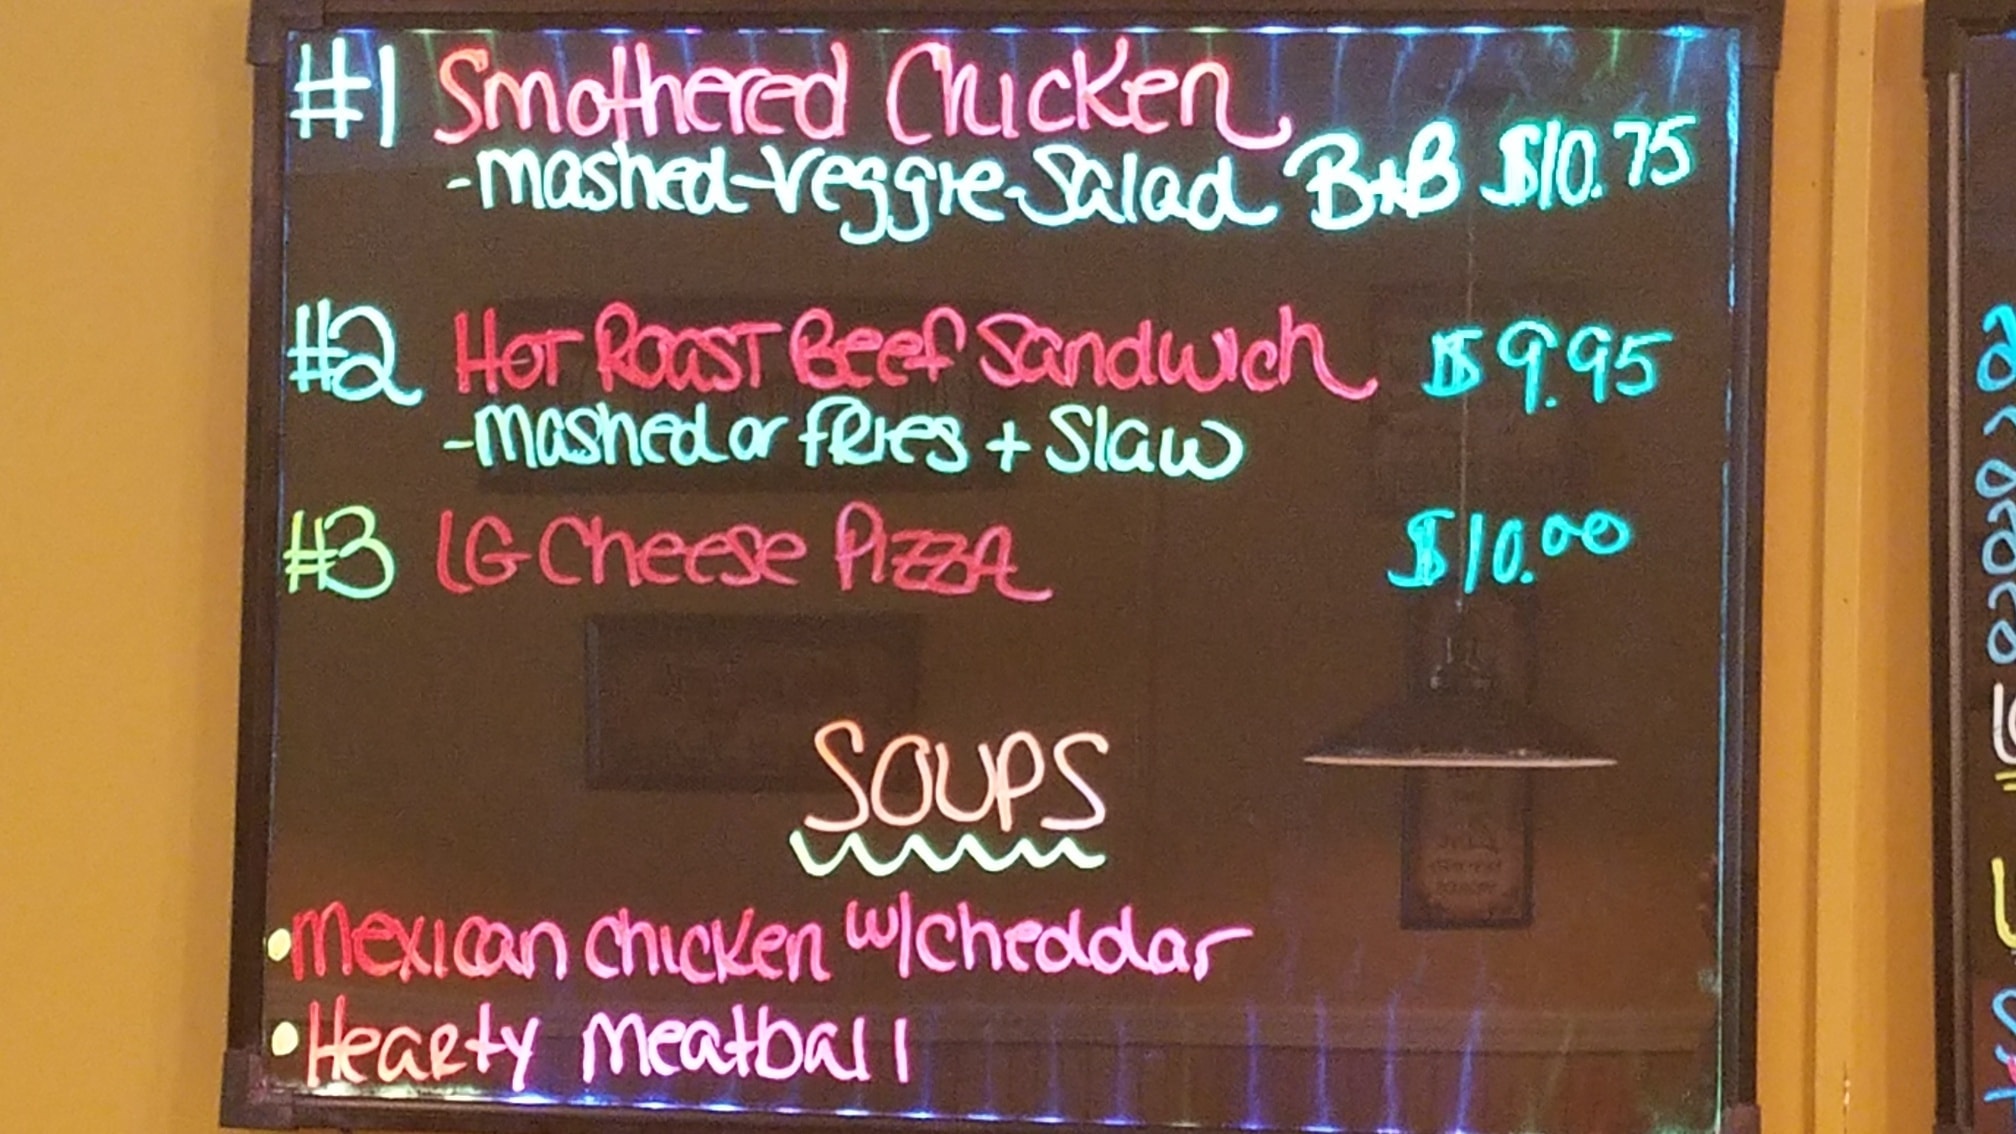 #1 Smothered Chicken
-mashed-veggie-Salad B+B $10.75
#2 HOT ROAST Beef Sandwich $9.95
-mashed or fries + Slaw
#3 LG Cheese Pizza $10.00
SOUPS
•mexican chicken w/cheddar
•Hearty meatball